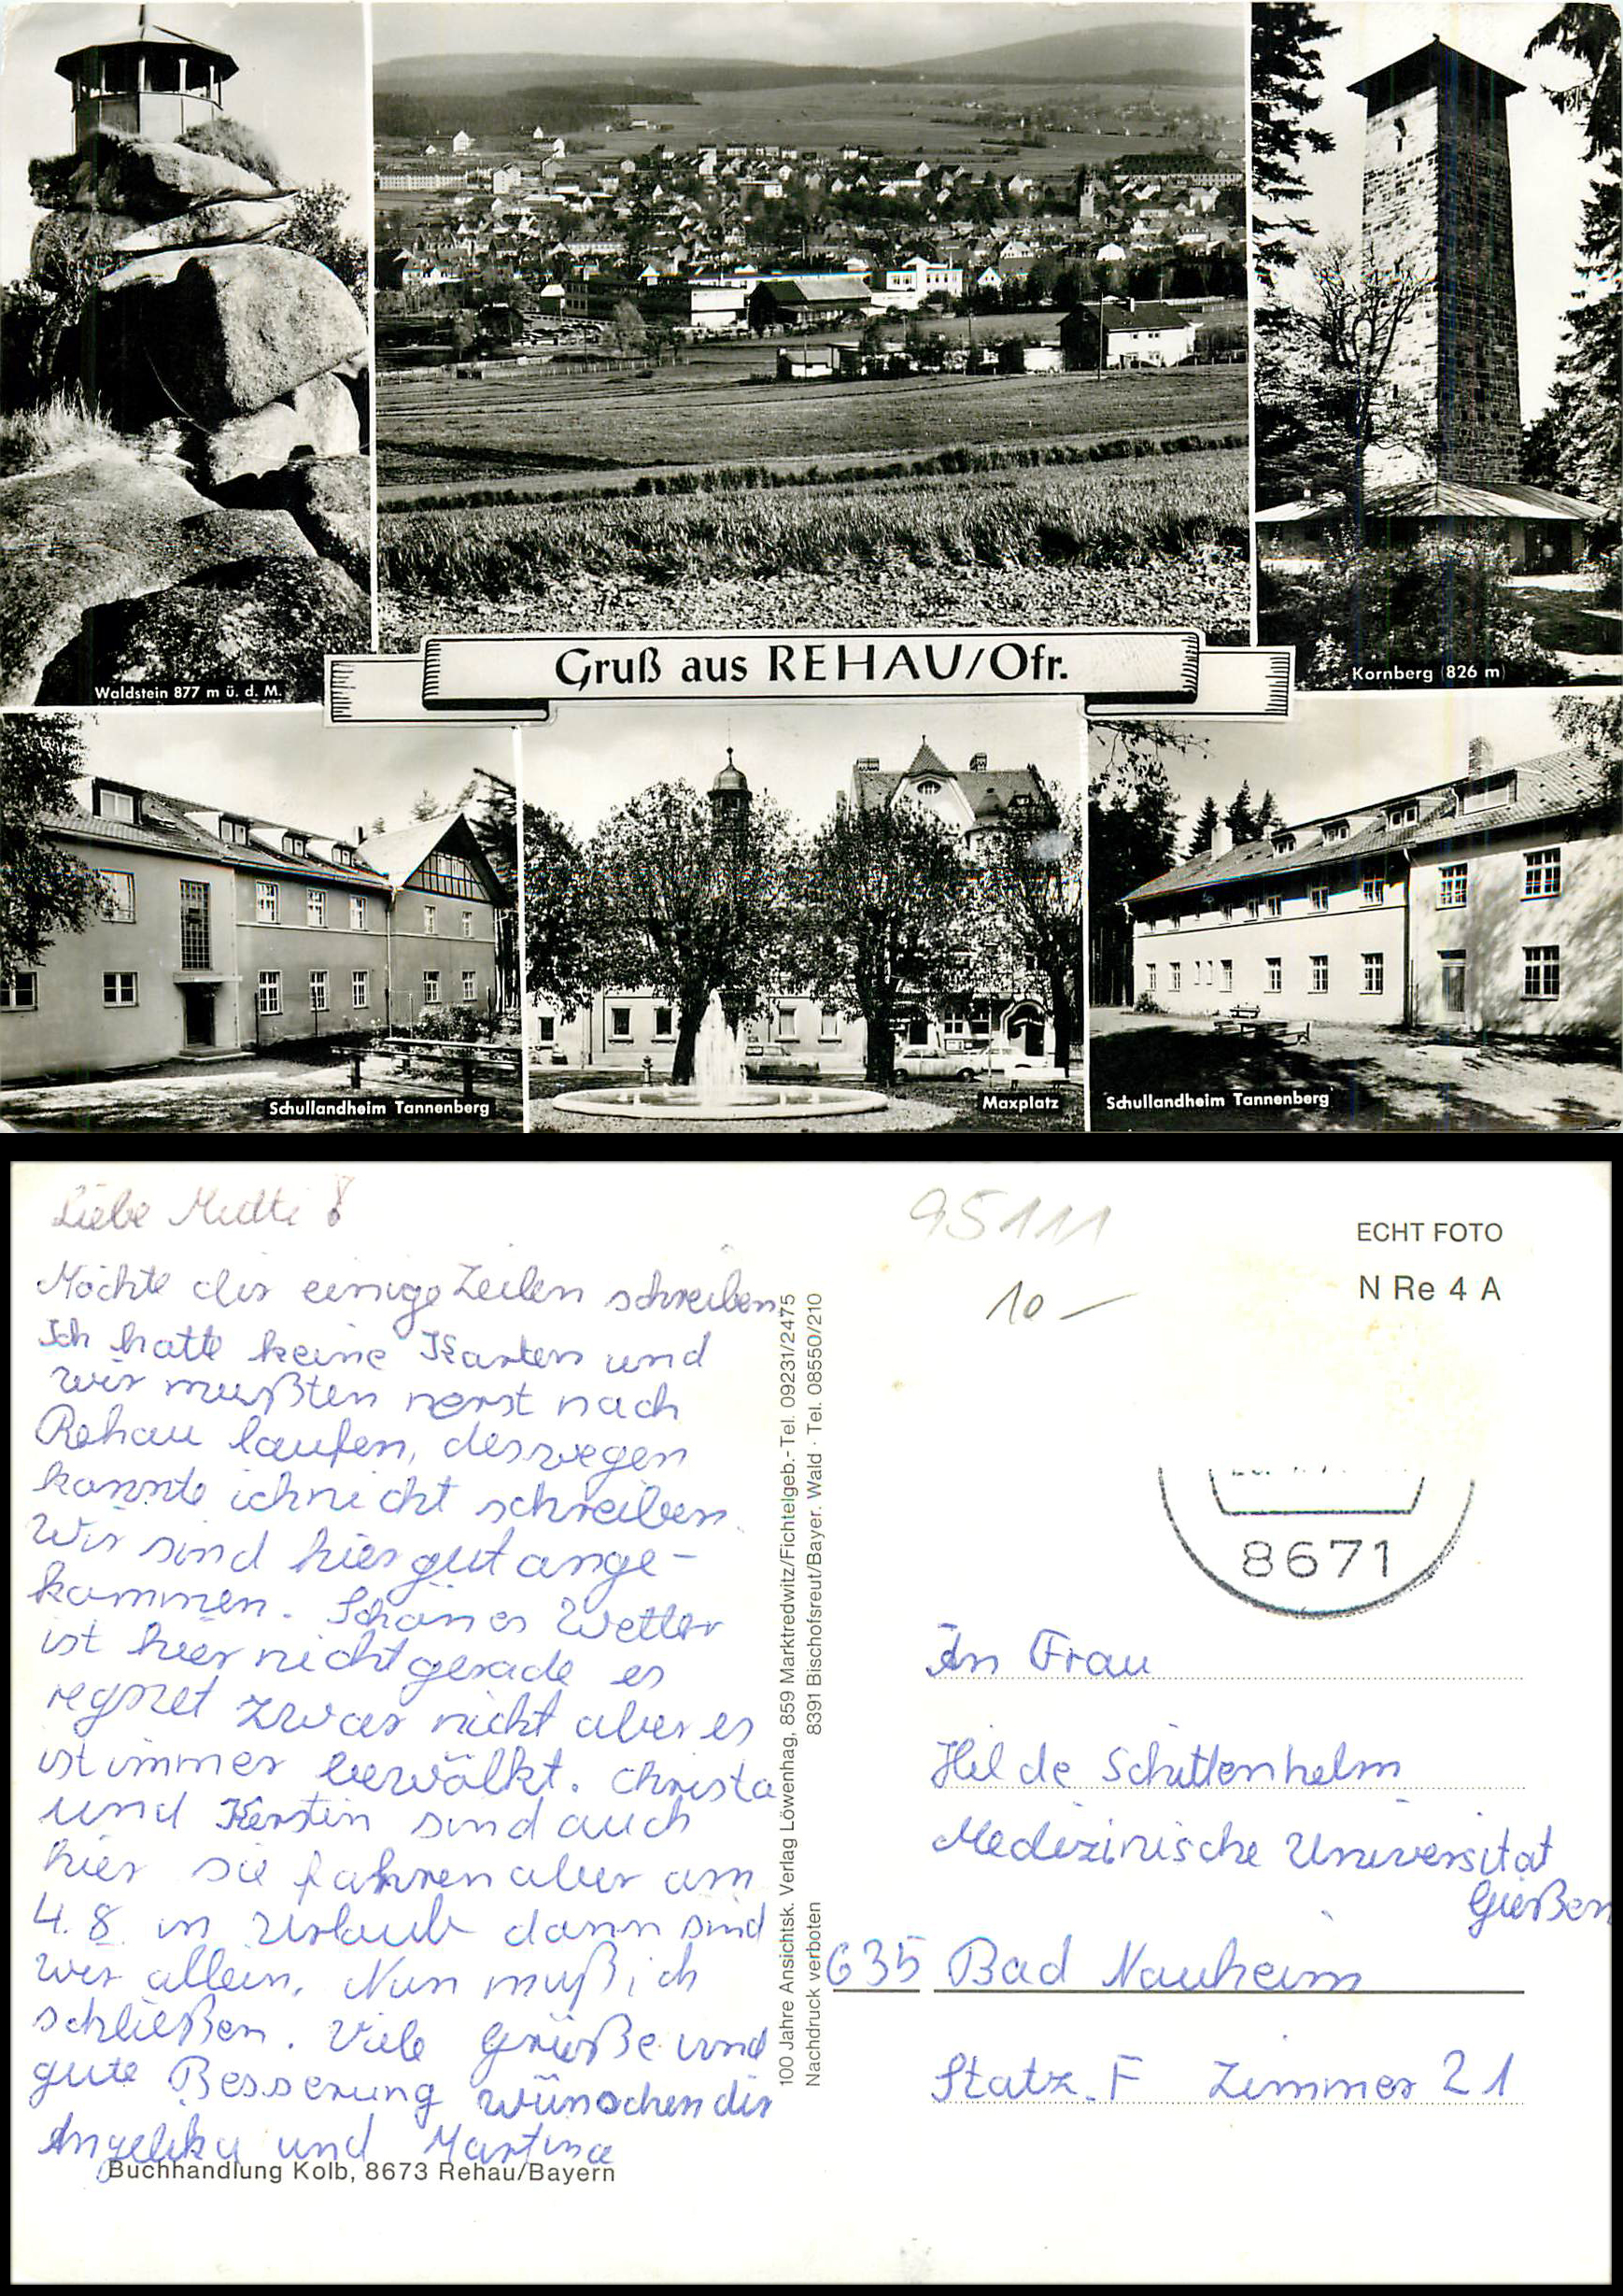 Gruß aus REHAU/Ofr.
Waldstein 877 m ü. d. M.
Kornberg (826 m)
Schullandheim Tannenberg
Maxplatz
Schullandheim Tannenberg
Liebe Mutti!
Möchte dir einige Zeilen schreiben
Ich hatte keine Karten und
wir mußten nerst nach
Rehau laufen, deswegen
konnte ich nicht schreiben.
Wir sind hier gut ange-
kommen. Schönes Wetter
ist hier nicht gerade es
regnet zwar nicht aber es
ist immer bewölkt. Christa
und Kerstin sind auch
hier sie fahren aber am
4.8. in Urlaub dann sind
wir allein. Nun muß ich
schließen. Viele Grüße und
gute Besserung wünschen dir
Angelika und Martina
Buchhandlung Kolb, 8673 Rehau/Bayern
100 Jahre Ansichtsk. Verlag Löwenhag, 859 Marktredwitz/Fichtelgeb.- Tel. 09231/2475
Nachdruck verboten 8391 Bischofsreut/Bayer. Wald · Tel. 08550/210
95111
10.-
ECHT FOTO
N Re 4 A
8671
An Frau
Hilde Schittenhelm
Medizinische Universität
Gießen
635 Bad Nauheim
Statz. F Zimmer 21